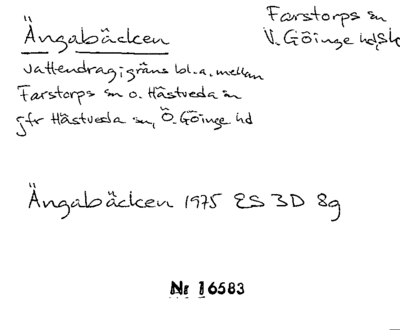 Ängabäcken
Farstorps sn
V. Göinge hd, Sk
vattendrag i gräns bl.a. mellan
Farstorps sn o. Hästveda sn
jfr Hästveda sn, Ö. Göinge hd
Ängabäcken 1975 ES 3D 8g
Nr 16583